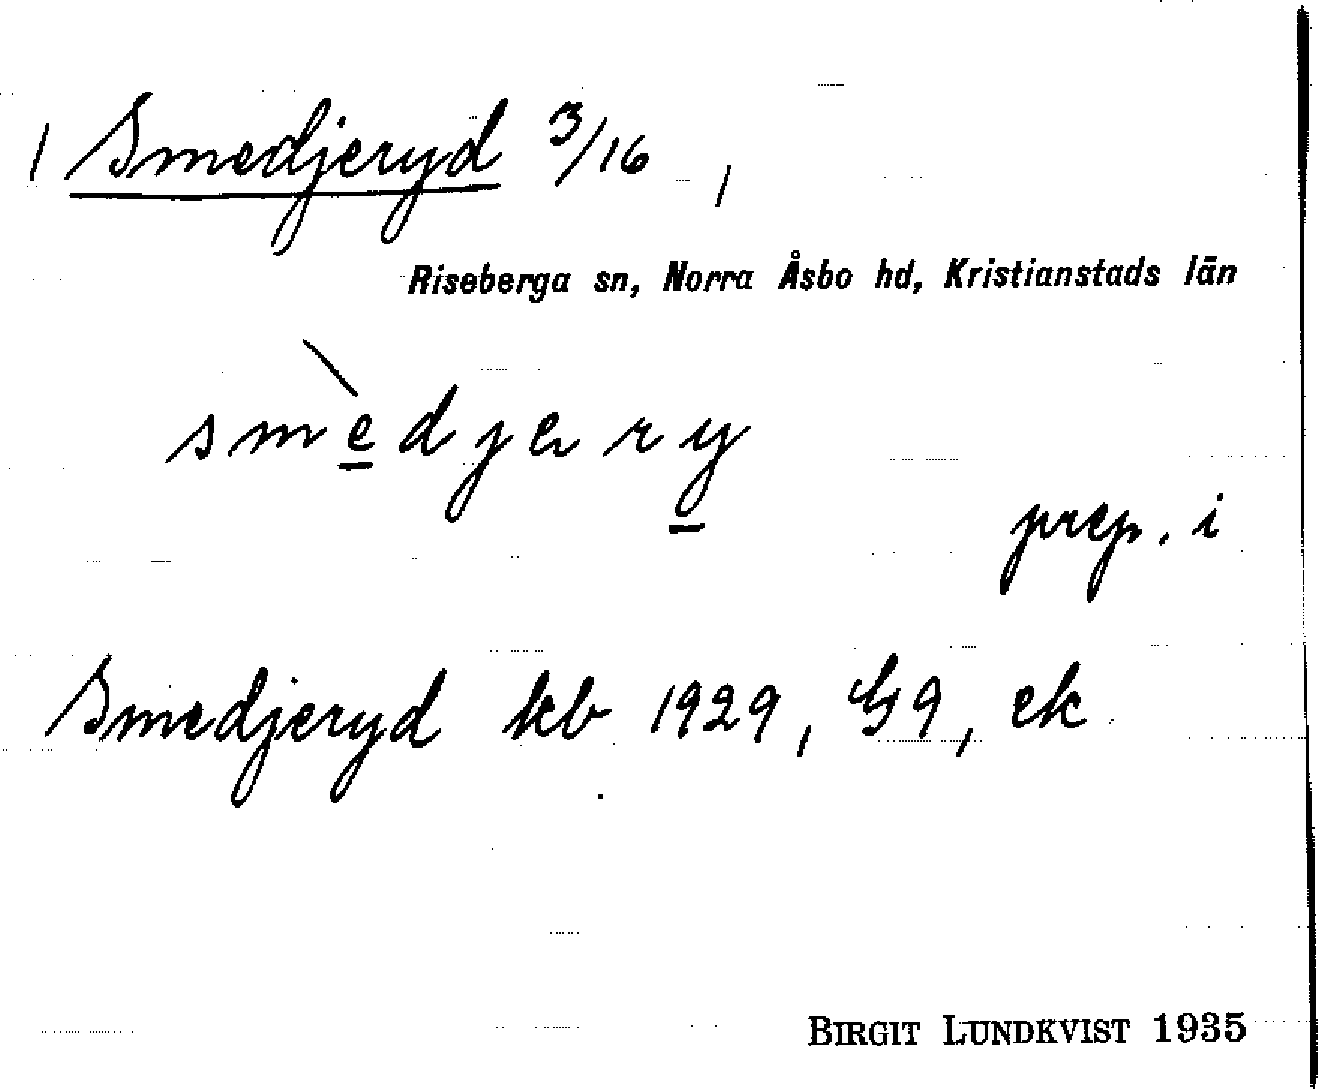 / Smedjeryd 3/16 /
Riseberga sn, Norra Åsbo hd, Kristianstads län
smèdjery
prep. i
Smedjeryd kb 1929, G9, ek
BIRGIT LUNDKVIST 1935